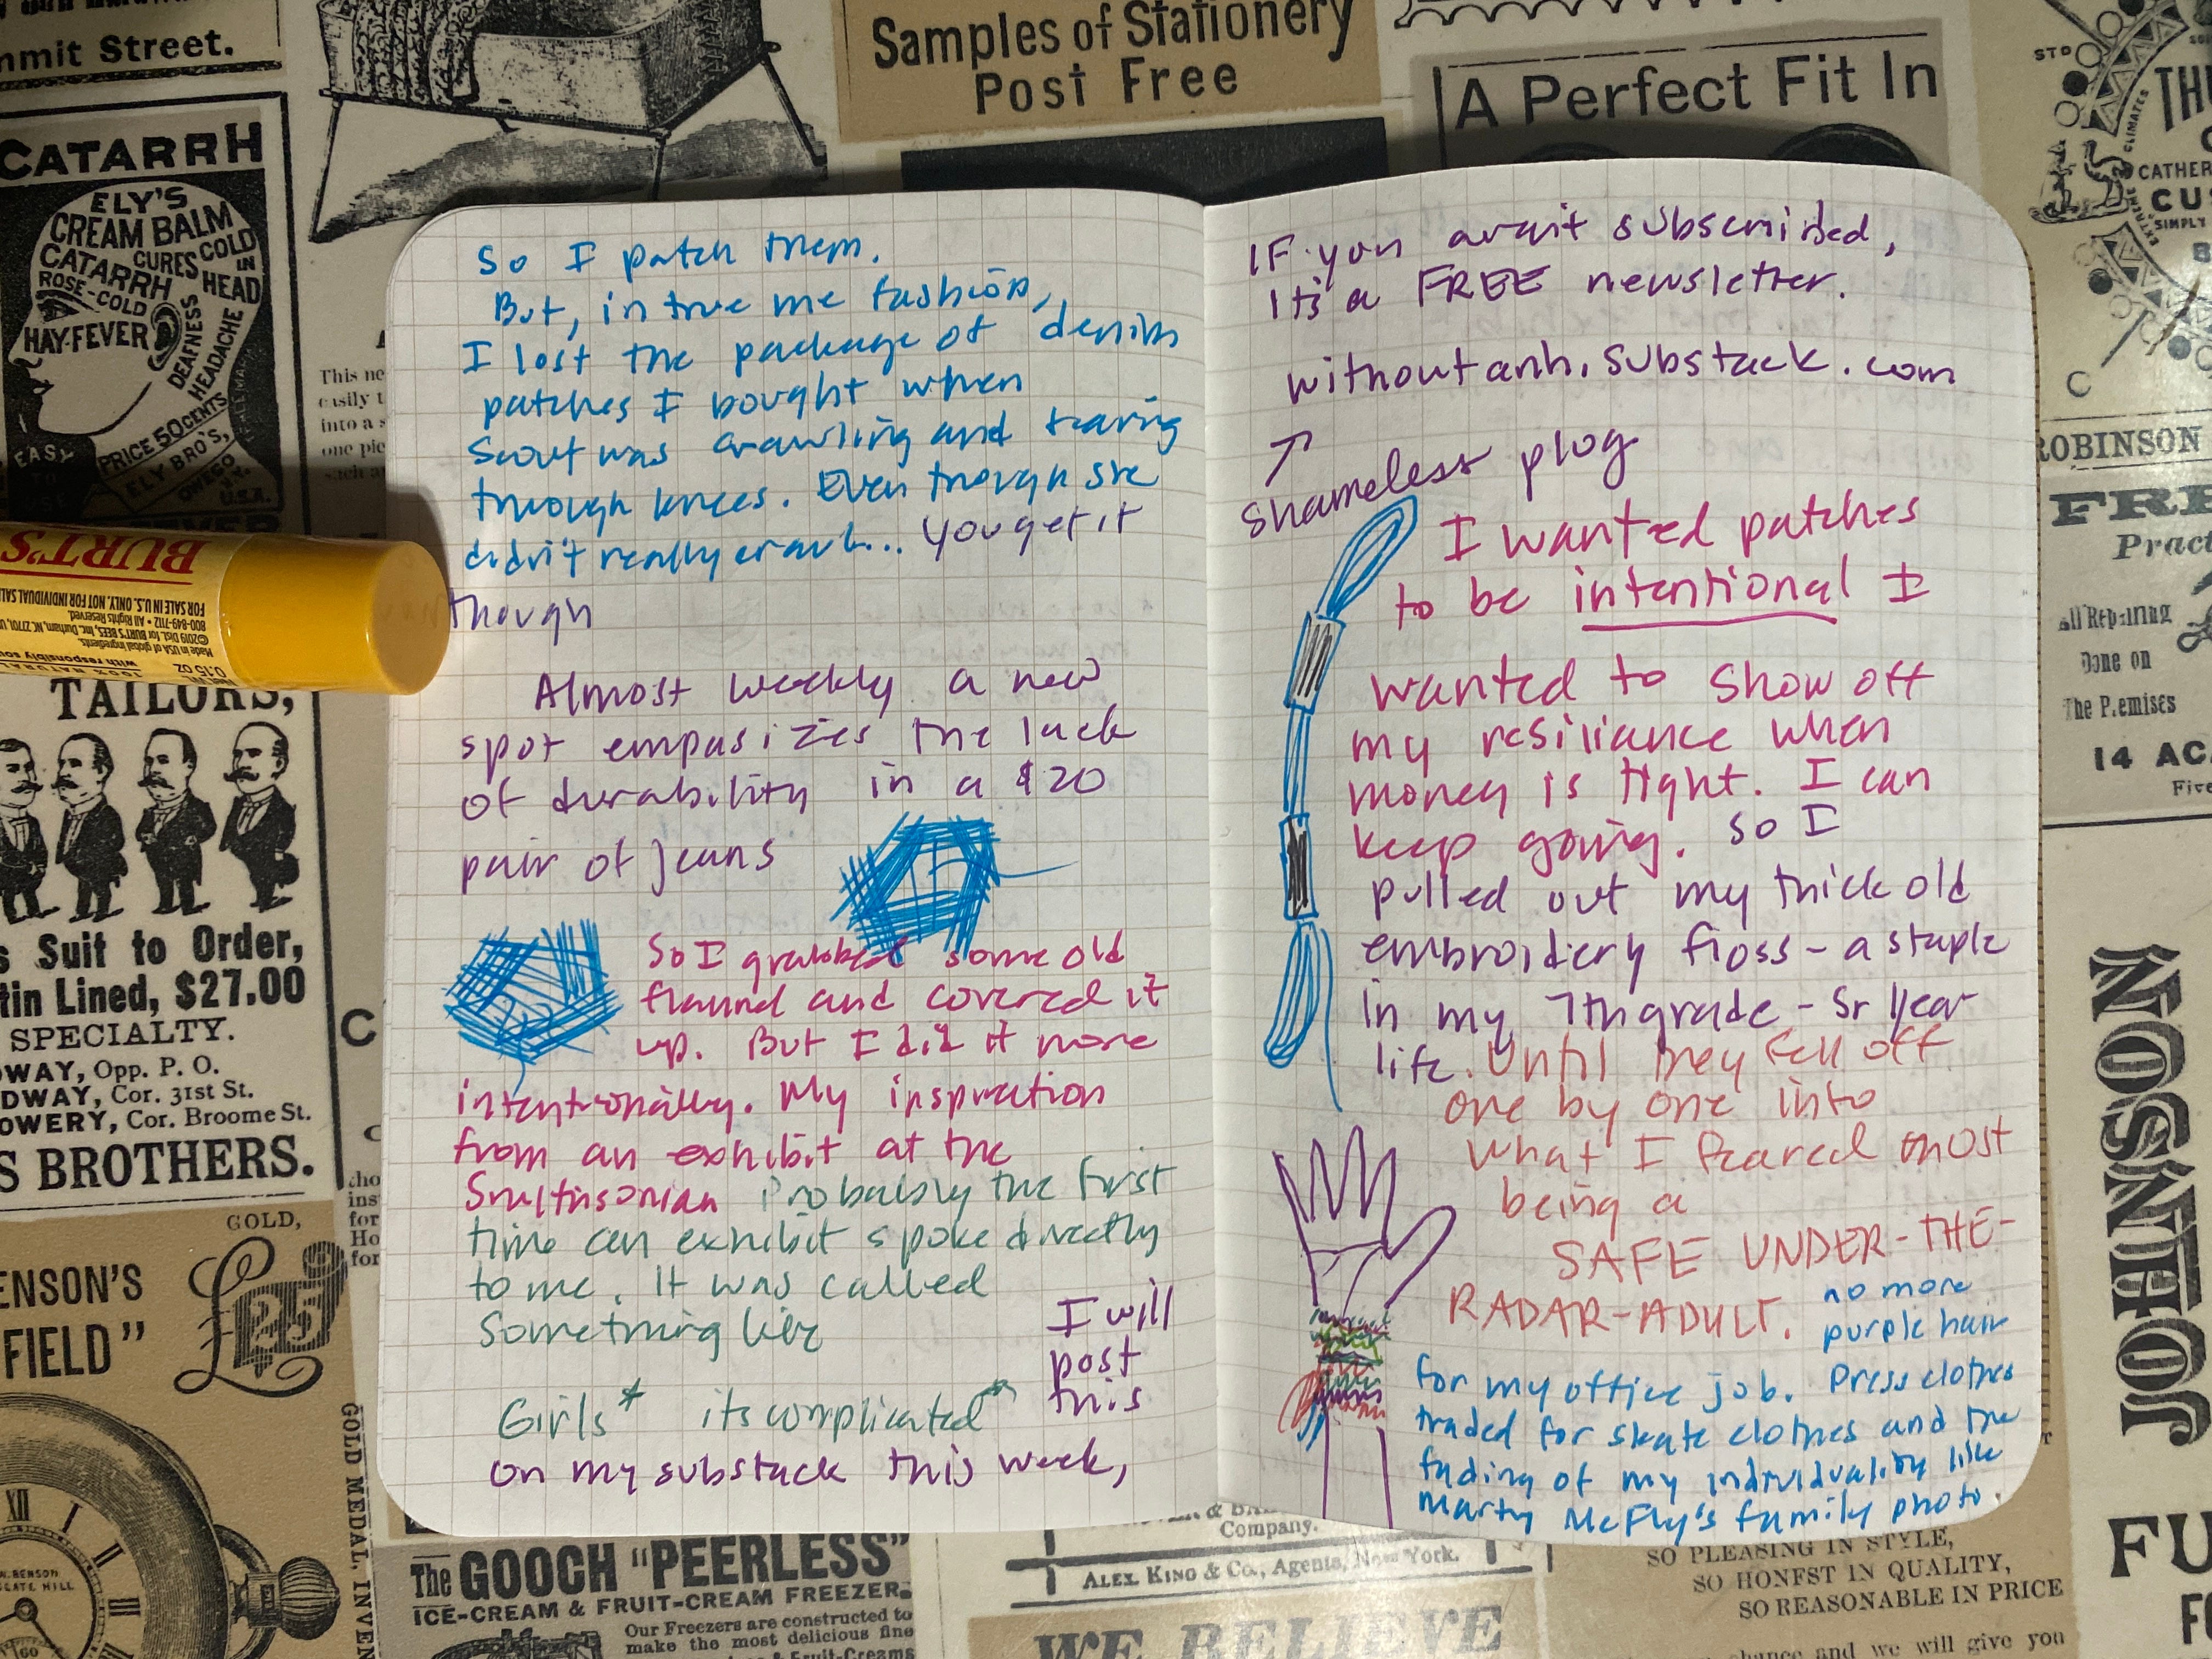 mmit Street.
CATARRH
ELY'S
CREAM BALM
CURES
COLD
IN
HEAD
CATARRH
ROSE-COLD
HAY-FEVER
DEAFNESS
HEADACHE
EASY
TO
USE
PRICE 50 CENTS
ELY BRO'S,
OWEGO
N.Y.
U.S.A.
This ne
easily t
into a s
one pie
such a
Samples of Stationery
Post Free
A Perfect Fit In
STD
CLIMATES
CATHER
CU
SIMPLY
BURT'S
FOR SALE IN U.S. ONLY. NOT FOR INDIVIDUAL SAL
800-849-7112 • All Rights Reserved.
©2019 Dist. for Burt's Bees, Inc. Durham, NC 27701, U
Made in USA of global ingredients.
with responsibly sou
0.15 oz
So I patch them.
But, in true me fashion,
I lost the package of denim
patches I bought when
Scout was crawling and tearing
through knees. Even though she
didn't really crawl... you get it
though
Almost weekly a new
spot empasizes the lack
of durability in a $20
pair of jeans
So I grabbed some old
flannel and covered it
up. But I did it more
intentionally. My inspiration
from an exhibit at the
Smithsonian Probably the first
time an exhibit spoke directly
to me. It was called
something like
Girls* its complicated*
I will
post
this
on my substack this week,
IF you arent subscribed,
Its a FREE newsletter.
withoutanh.substack.com
↗
Shameless plug
I wanted patches
to be intentional I
wanted to show off
my resiliance when
money is tight. I can
keep going. So I
pulled out my thick old
embroidery floss - a staple
in my 7th grade - Sr year
life. Until they fell off
one by one into
what I feared most
being a
SAFE UNDER-THE-
RADAR-ADULT.
no more
purple hair
for my office job. Press clothes
traded for skate clothes and the
fading of my individuality like
Marty McFly's family photo.
TAILORS,
s Suit to Order,
tin Lined, $27.00
SPECIALTY.
WAY, Opp. P. O.
DWAY, Cor. 31st St.
OWERY, Cor. Broome St.
S BROTHERS.
GOLD,
£25
ENSON'S
FIELD"
GOLD MEDAL, INVEN
XII
I
III
The GOOCH "PEERLESS"
ICE-CREAM & FRUIT-CREAM FREEZER.
Our Freezers are constructed to
make the most delicious fine
Fruit-Creams
Company.
ALEX. KING & Co., Agents, New York.
WE BELIEVE
ROBINSON
FRE
Pract
All Repairing
Done on
The Premises
14 AC
Five
JOHNSON
SO PLEASING IN STYLE,
SO HONEST IN QUALITY,
SO REASONABLE IN PRICE
and we will give you
FU